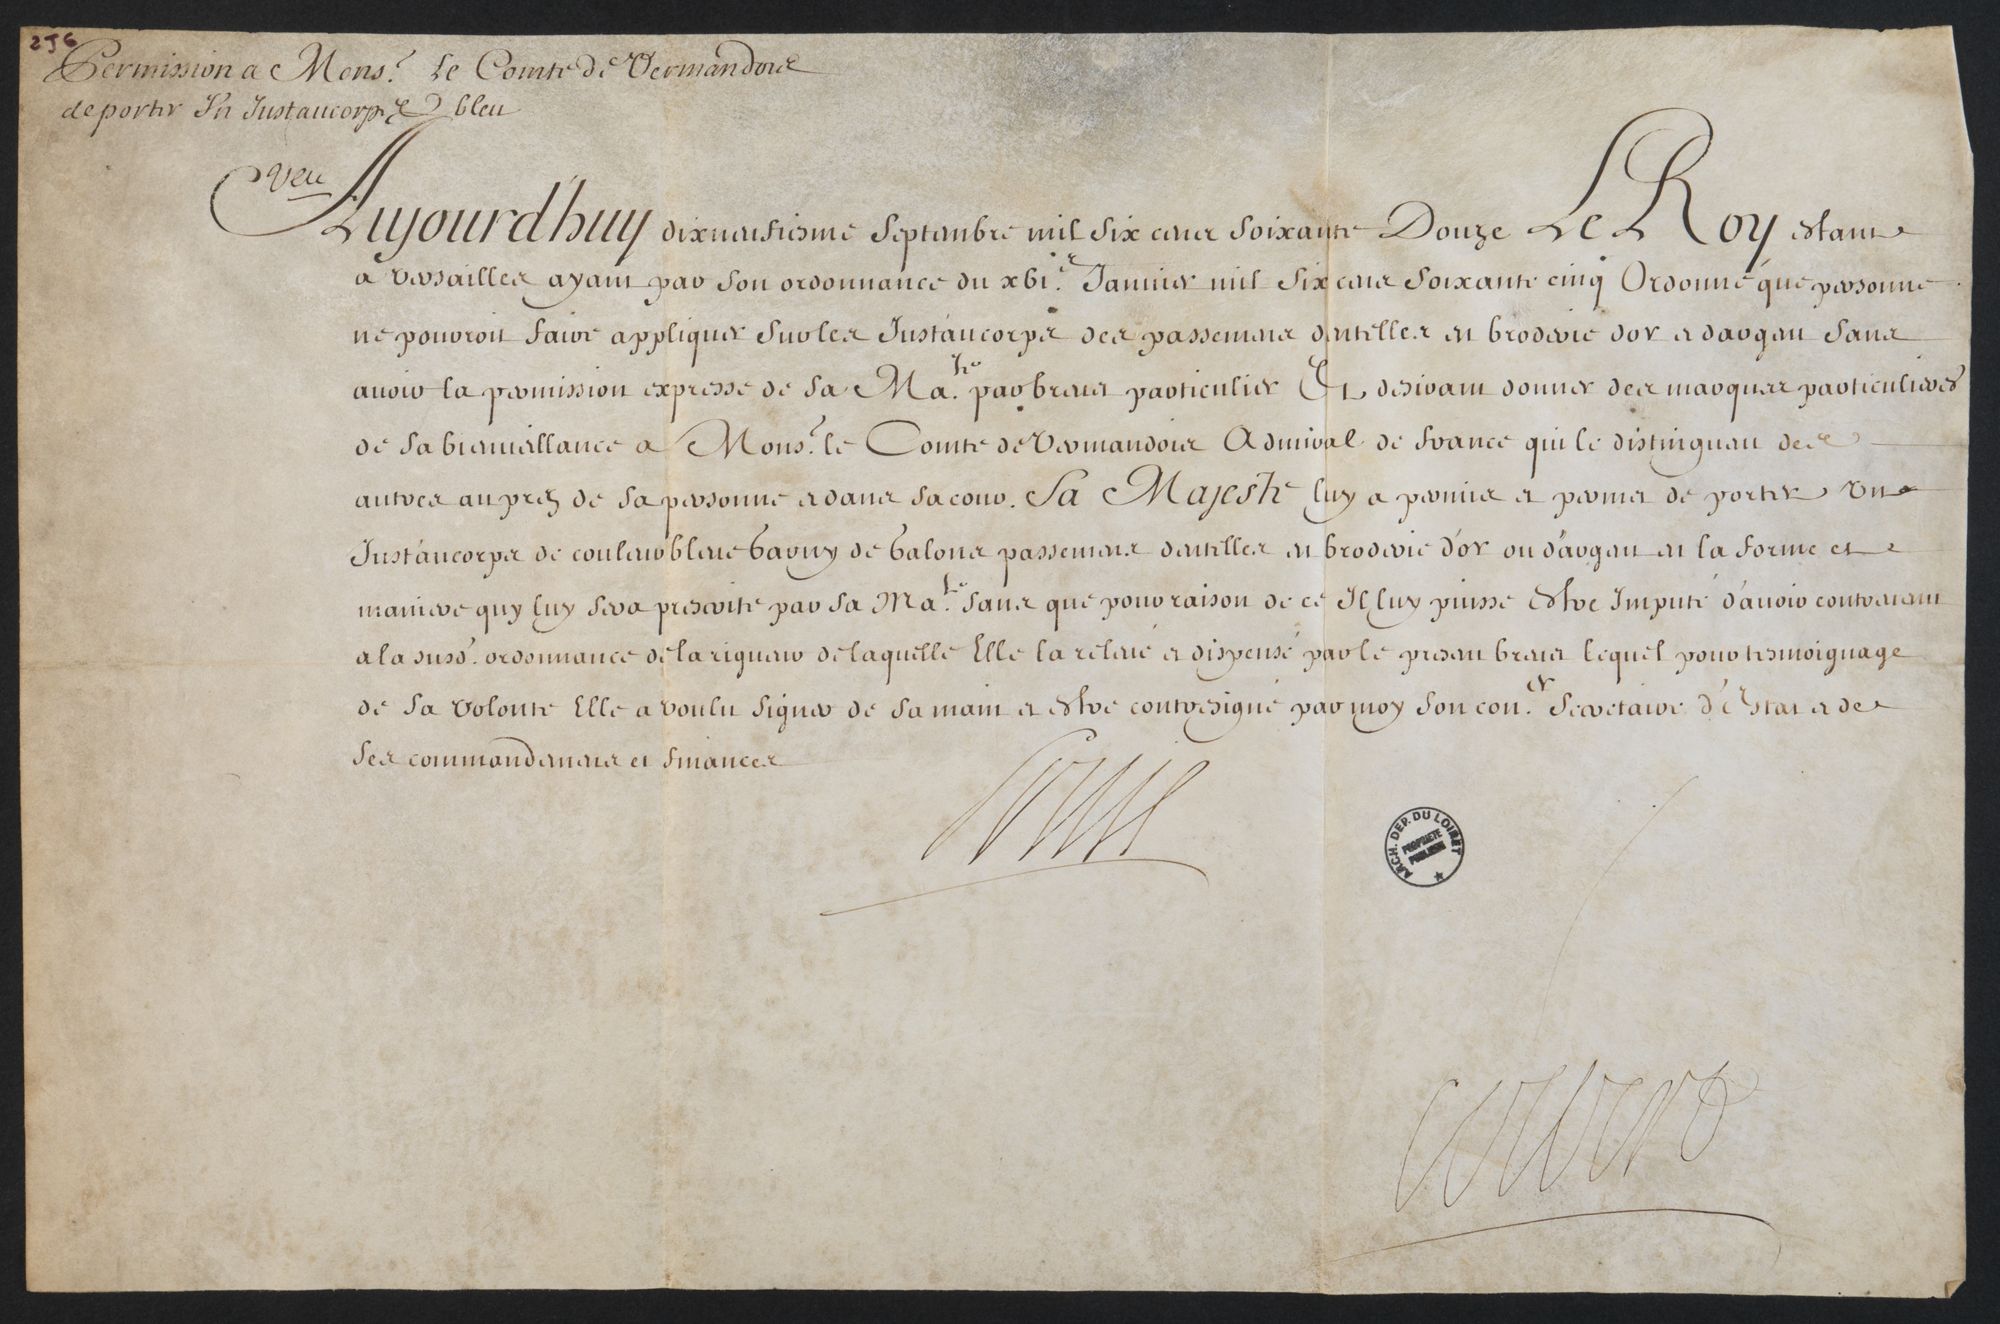 2J6
Permission a Mons.r le Comte de Vermandois
de porter Un Justaucorps bleu
veu
Aujourd'huy dixneufiesme Septembre mil six cens soixante Douze Le Roy estant
a Versailles ayant par son ordonnance du xvi.e Janvier mil six cens soixante cinq Ordonné que personne
ne pouvroit faire appliquer sur les Justaucorps des passemens dentelles et broderie d'or et d'argent sans
avoir la permission expresse de sa Ma.té par brevet particulier Et desirant donner des marques particulieres
de sa bienveillance a Mons.r le Comte de Vermandois Admiral de france qui le distinguent des
autres au prez de sa personne et dans sa cour. Sa Majesté luy a permis et permet de porter un
Justaucorps de couleur bleue garny de galons passemens dentelles et broderie d'or ou d'argent en la forme et
maniere quy luy sera prescrite par sa Ma.té sans que pour raison de ce Il luy puisse estre Imputé d'avoir contrevenu
a la susd. ordonnance de la rigueur de laquelle Elle la relevé et dispensé par le present brevet lequel pour tesmoignage
de sa volonté Elle a voulu signer de sa main et estre contresigné par moy son con.er Secretaire d'Estat et de
ses commandemens et finances
Louis
ARCH. DEP. DU LOIRET
PROPRIETE
PUBLIQUE
Colbert